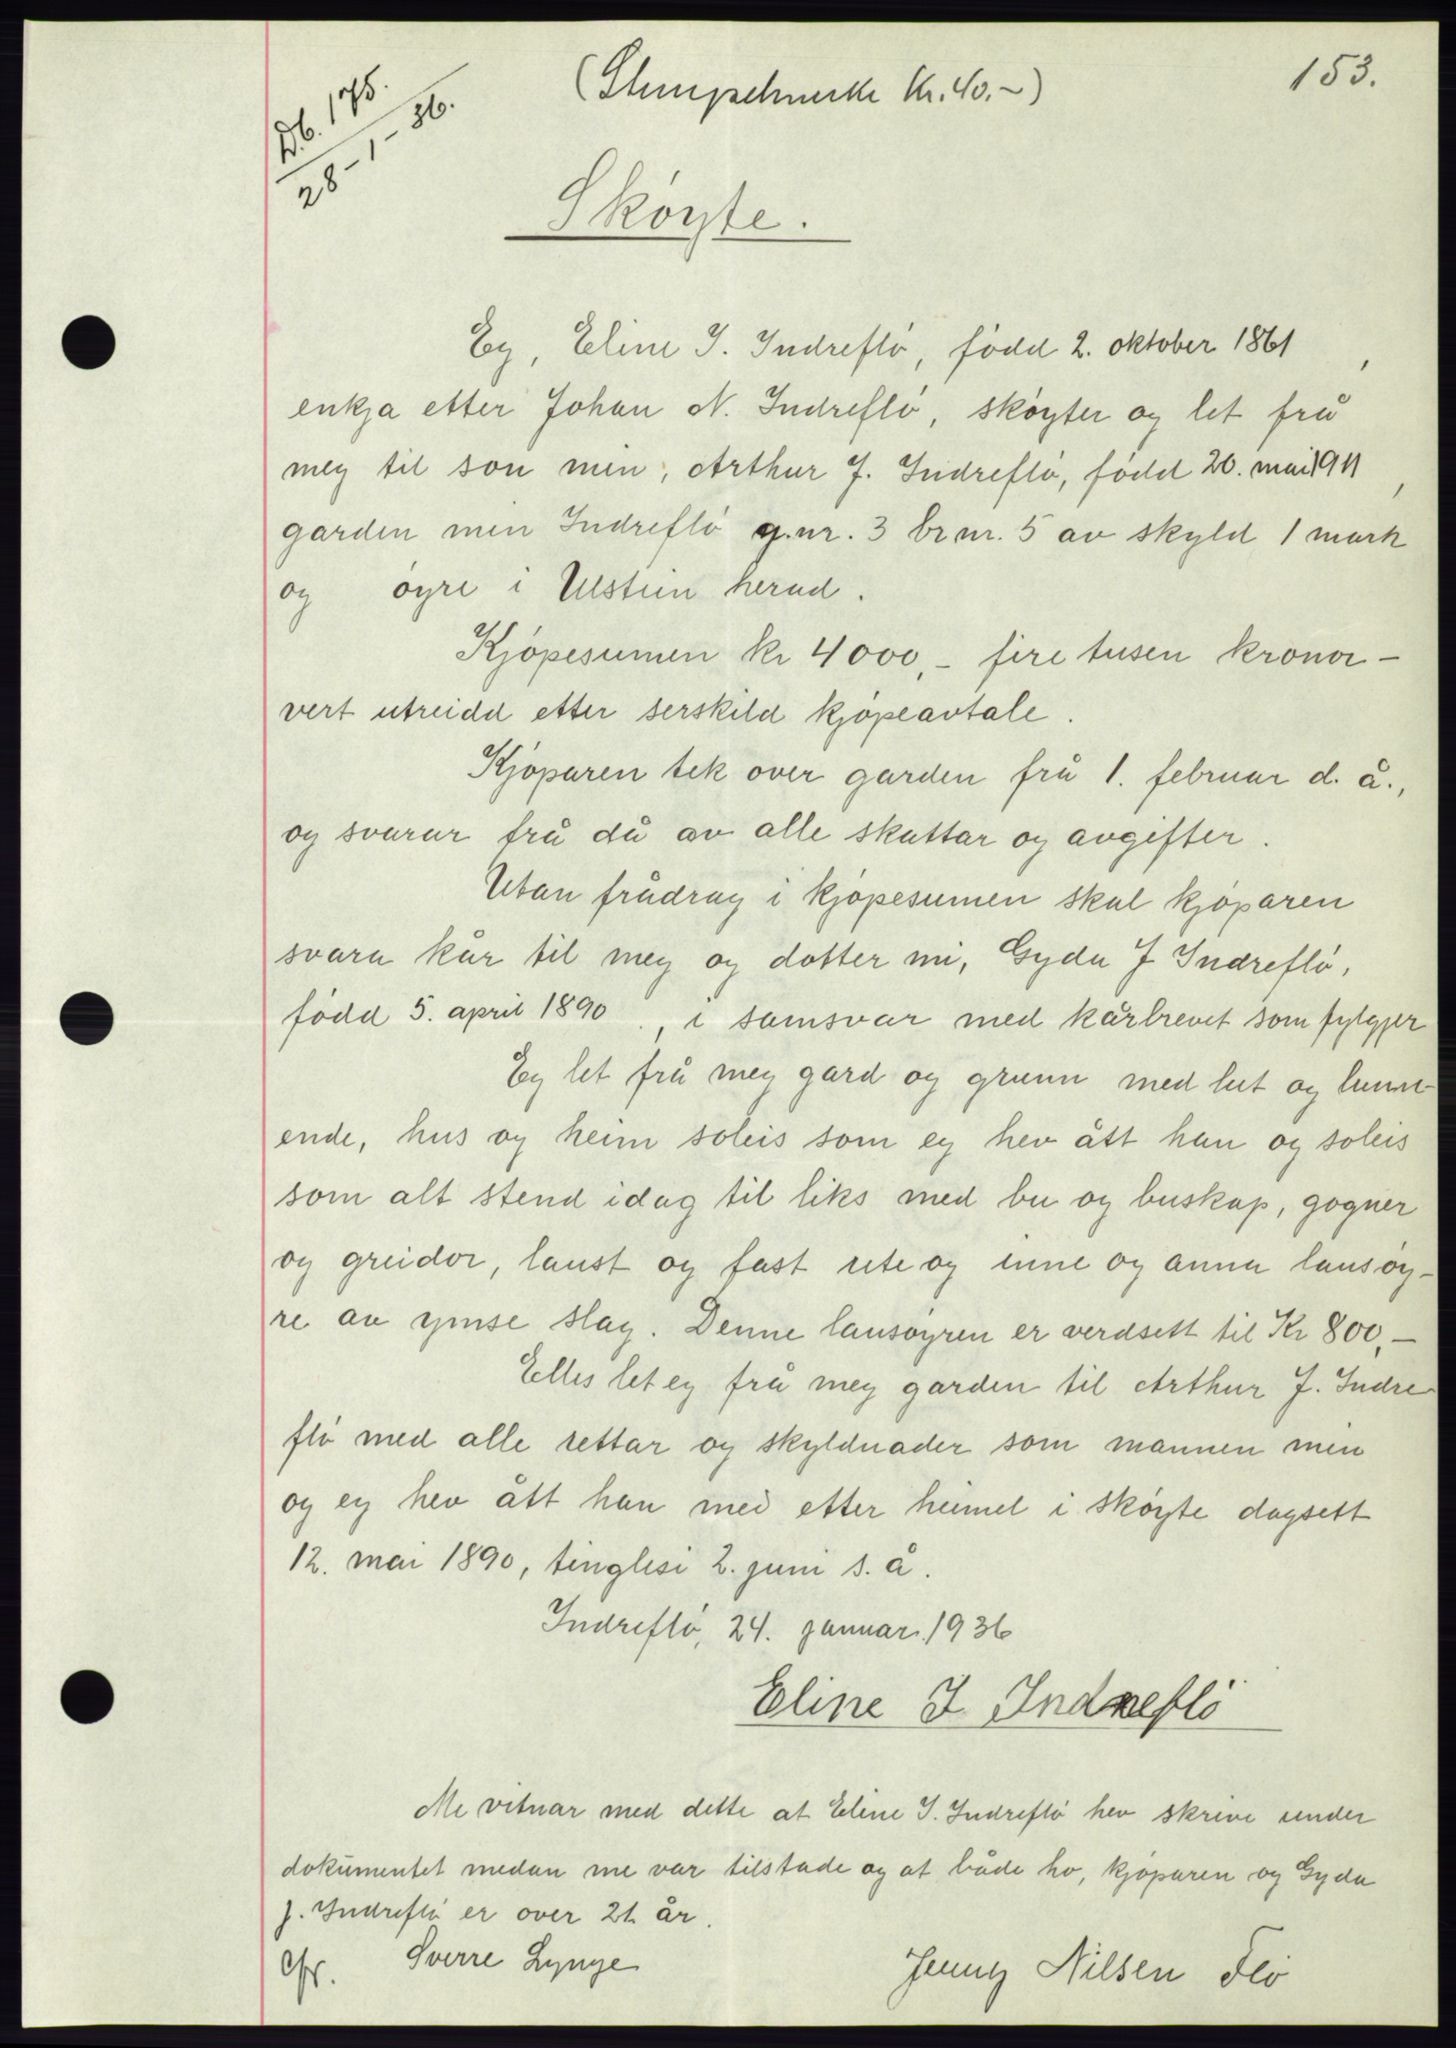 153.
(Stempelmerke Kr. 40.-)
Db. 175.
28-1-36.
Skøyte.
Eg, Eline I. Indreflø, fødd 2. oktober 1861,
enkja etter Johan N. Indreflø, skøyter og let frå
meg til son min, Arthur J. Indreflø, fødd 20. mai 1911,
garden min Indreflø g.nr. 3 br.nr. 5 av skyld 1 mark
og øyre i Ulstein herad.
Kjøpesumen kr 4000,- fire tusen kronor -
vert utreidd etter serskild kjøpeavtale.
Kjøparen tek over garden frå 1. februar d. å.,
og svarar frå då av alle skattar og avgifter.
Utan frådrag i kjøpesumen skal kjøparen
svara kår til meg og dotter mi, Gyda J Indreflø,
fødd 5. april 1890, i samsvar med kårbrevet som fylgjer
Eg let frå meg gard og grunn med lut og lunn-
ende, hus og heim soleis som eg hev ått han og soleis
som alt stend idag til liks med bu og buskap, gogner
og greidor, laust og fast ute og inne og anna lausøy-
re av ymse slag. Denne lausøyren er verdsett til Kr 800,-
Elles let eg frå meg garden til Arthur J. Indre
flø med alle rettar og skyldnader som mannen min
og eg hev ått han med etter heimel i skøyte dagsett
12. mai 1890, tinglesi 2. juni s. å.
Indreflø, 24. januar 1936
Eline I Indreflø
Me vitnar med dette at Eline I. Indreflø hev skrive under
dokumentet medan me var tilstade og at både ho, kjøparen og Gyda
J. Indreflø er over 21 år.
Sverre Lynge
Jenny Nilsen Flø